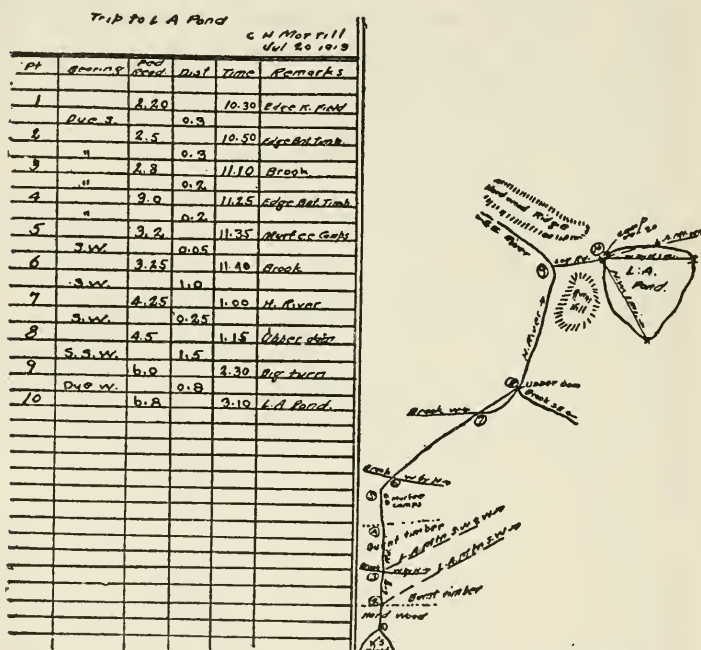 Trip to L A Pond
C H Morrill
Jul 20 1913
Pt Bearing Ped Read Dist Time Remarks
1 2.20 10.30 Edge K. Field
Due S. 0.3
2 2.5 10.50 Edge Bnt Timb.
" 0.3
3 2.8 11.10 Brook
" 0.2
4 3.0 11.25 Edge Bnt Timb
" 0.2
5 3.2 11.35 Murtee Camps
S.W. 0.05
6 3.25 11.40 Brook
S.W. 1.0
7 4.25 1.00 H. River
S.W. 0.25
8 4.5 1.15 Upper dam
S.S.W. 1.5
9 6.0 2.30 Big turn
Due W. 0.8
10 6.8 3.10 L.A Pond.
Hard wood Ridge
River
Camp
Jul 20
Log Rd. 10
9
L.A.
Pond.
Hill
H. River
8 Upper Dam
Brook
Brook
7
Brook W by N
6
5 Murtee
Camps
4
Burnt timber
L.A. Mtn S.W. & W
3
Brook
L.A. Mtn S.W
2
Burnt timber
Hard Wood
1
K's